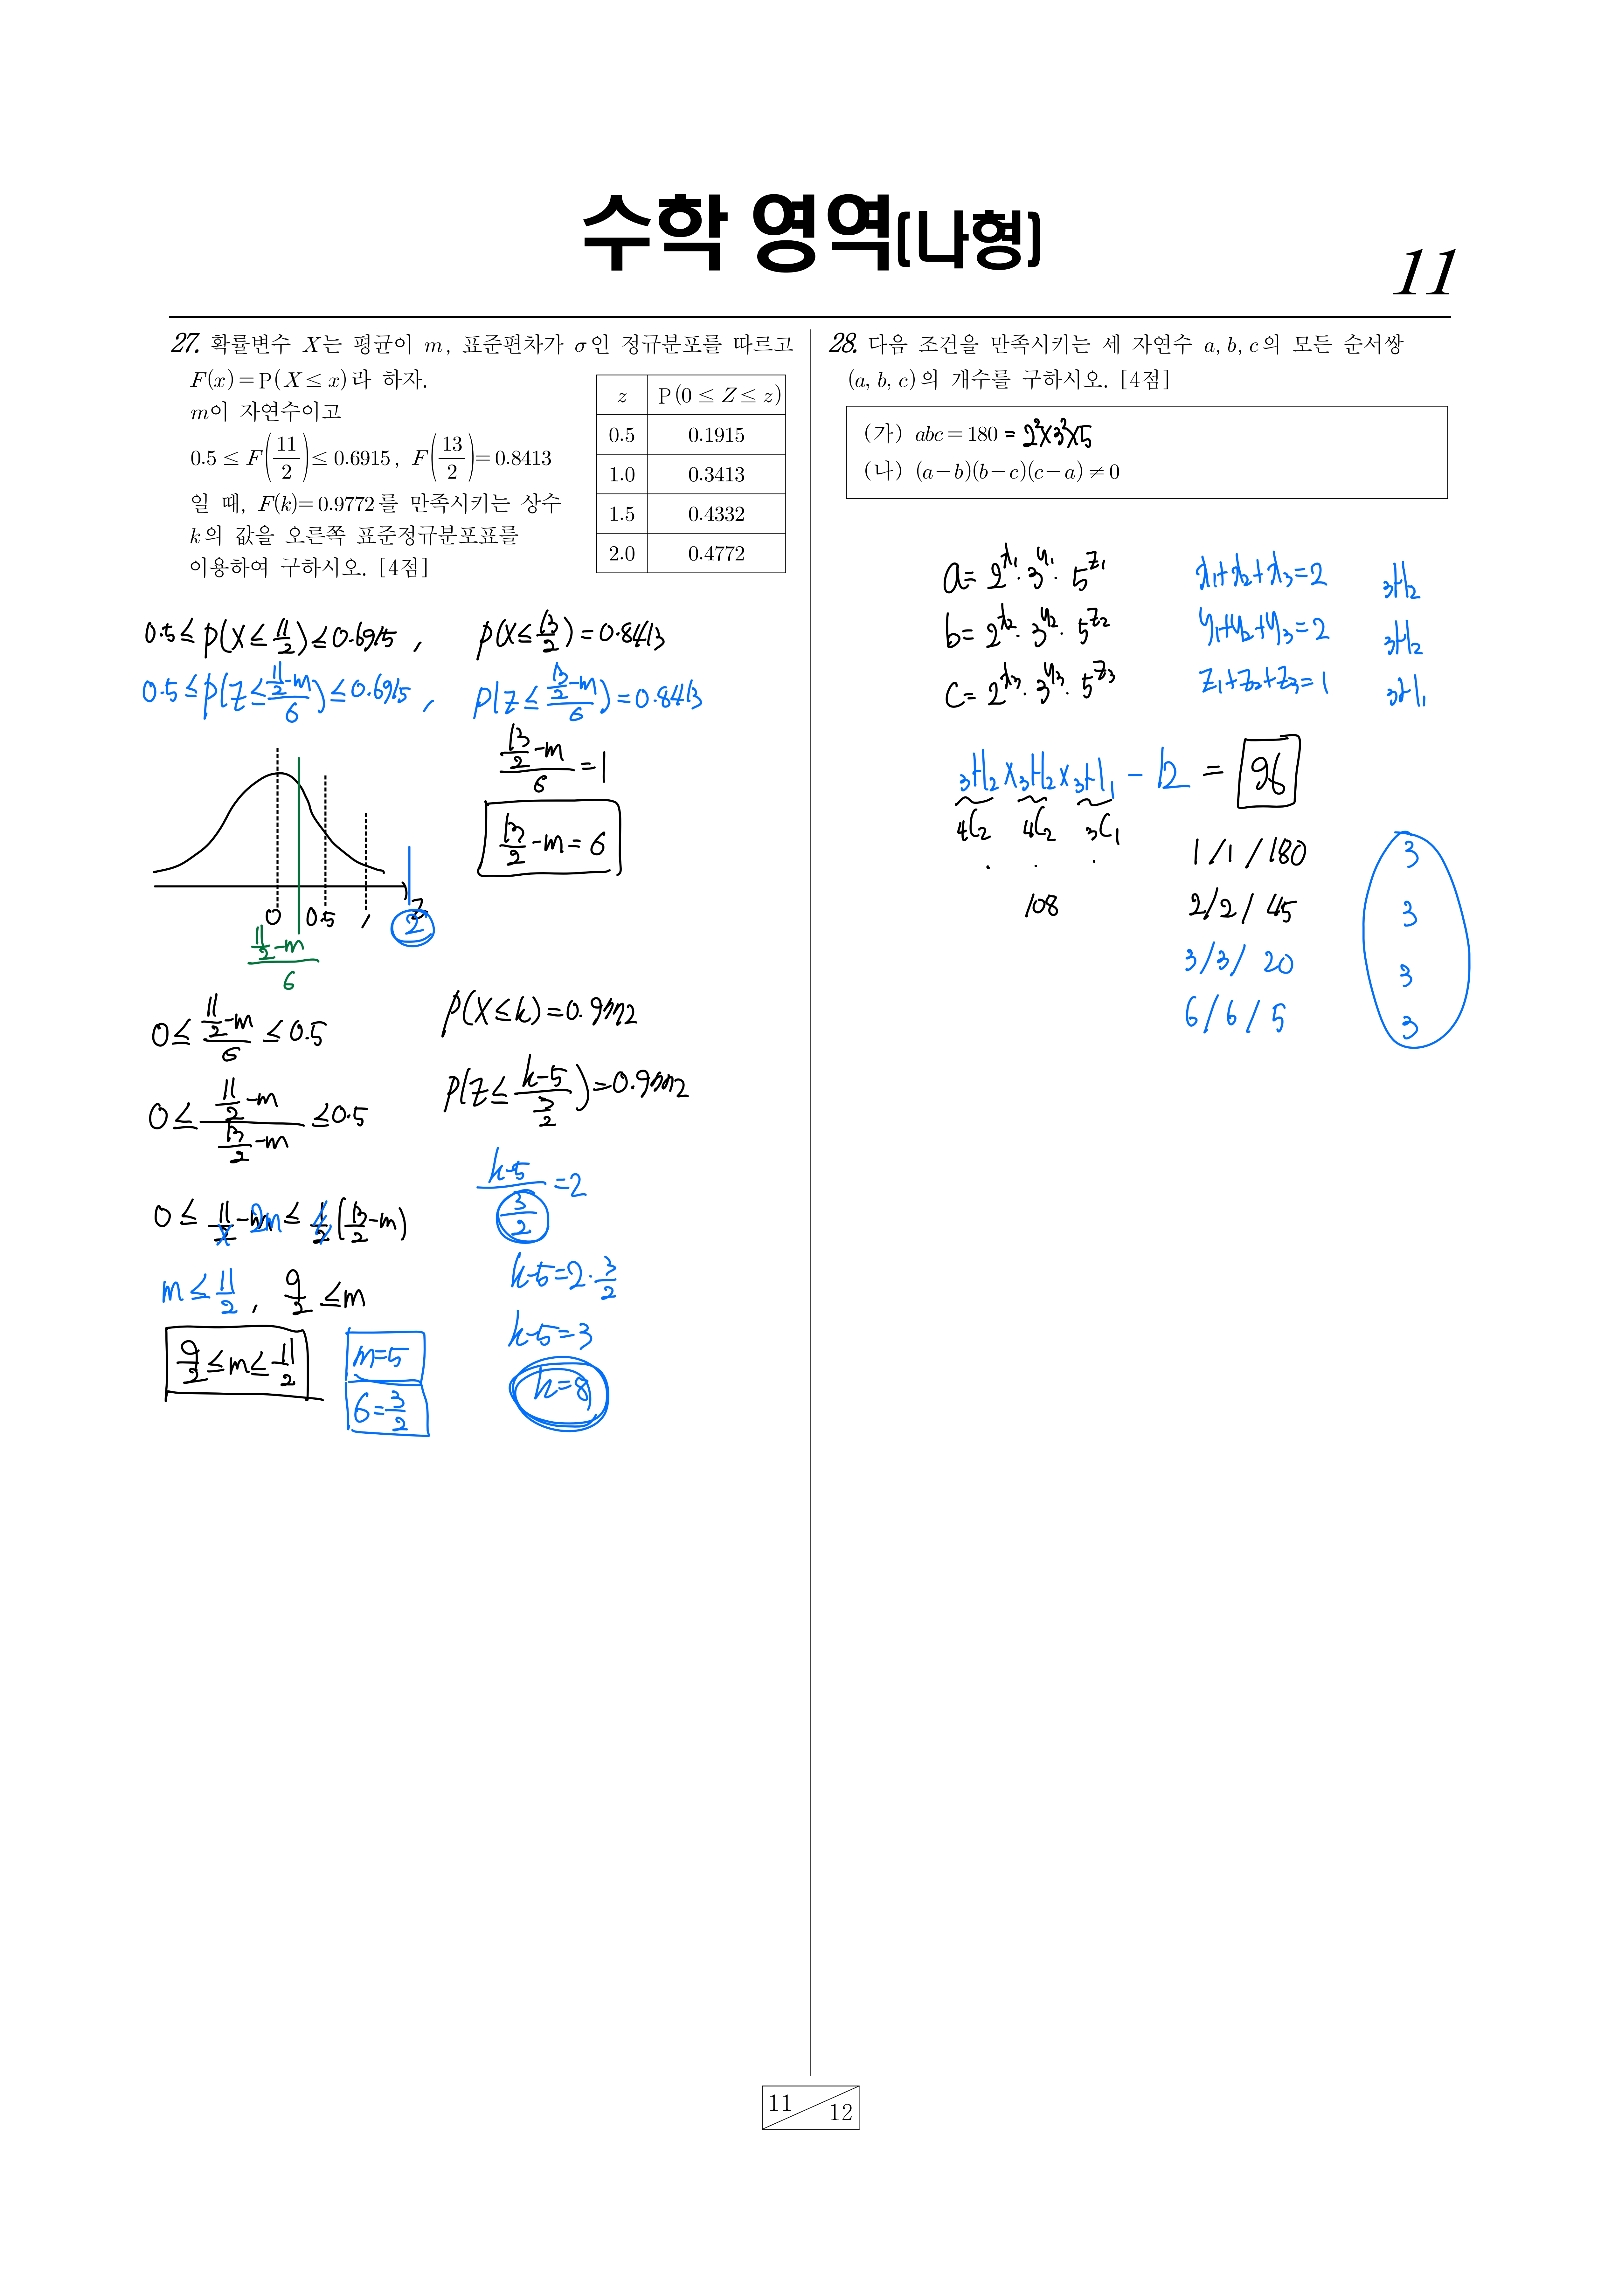 수학 영역(나형)
11
27. 확률변수 X는 평균이 m, 표준편차가 σ인 정규분포를 따르고
F(x)=P(X≤x)라 하자.
m이 자연수이고
0.5≤F(11/2)≤0.6915, F(13/2)=0.8413
일 때, F(k)=0.9772를 만족시키는 상수
k의 값을 오른쪽 표준정규분포표를
이용하여 구하시오. [4점]
z P(0≤Z≤z)
0.5 0.1915
1.0 0.3413
1.5 0.4332
2.0 0.4772
0.5≤P(X≤11/2)≤0.6915, P(X≤13/2)=0.8413
0.5≤P(Z≤(11/2-m)/σ)≤0.6915, P(Z≤(13/2-m)/σ)=0.8413
(13/2-m)/σ=1
13/2-m=σ
0 0.5 1 2
(11/2-m)/σ
0≤(11/2-m)/σ≤0.5
0≤(11/2-m)/(13/2-m)≤0.5
0≤11/2-m 2m≤1/2(13/2-m)
m≤11/2, 9/2≤m
9/2≤m≤11/2
m=5
σ=3/2
P(X≤k)=0.9772
P(Z≤(k-5)/(3/2))=0.9772
(k-5)/(3/2)=2
k-5=2·3/2
k-5=3
k=8
28. 다음 조건을 만족시키는 세 자연수 a, b, c의 모든 순서쌍
(a, b, c)의 개수를 구하시오. [4점]
(가) abc=180 =2²×3²×5
(나) (a-b)(b-c)(c-a)≠0
a=2^x₁·3^y₁·5^z₁ x₁+x₂+x₃=2 ₃H₂
b=2^x₂·3^y₂·5^z₂ y₁+y₂+y₃=2 ₃H₂
c=2^x₃·3^y₃·5^z₃ z₁+z₂+z₃=1 ₃H₁
₃H₂×₃H₂×₃H₁-12=96
₄C₂ ₄C₂ ₃C₁
108
1/1/180 3
2/2/45 3
3/3/20 3
6/6/5 3
11
12